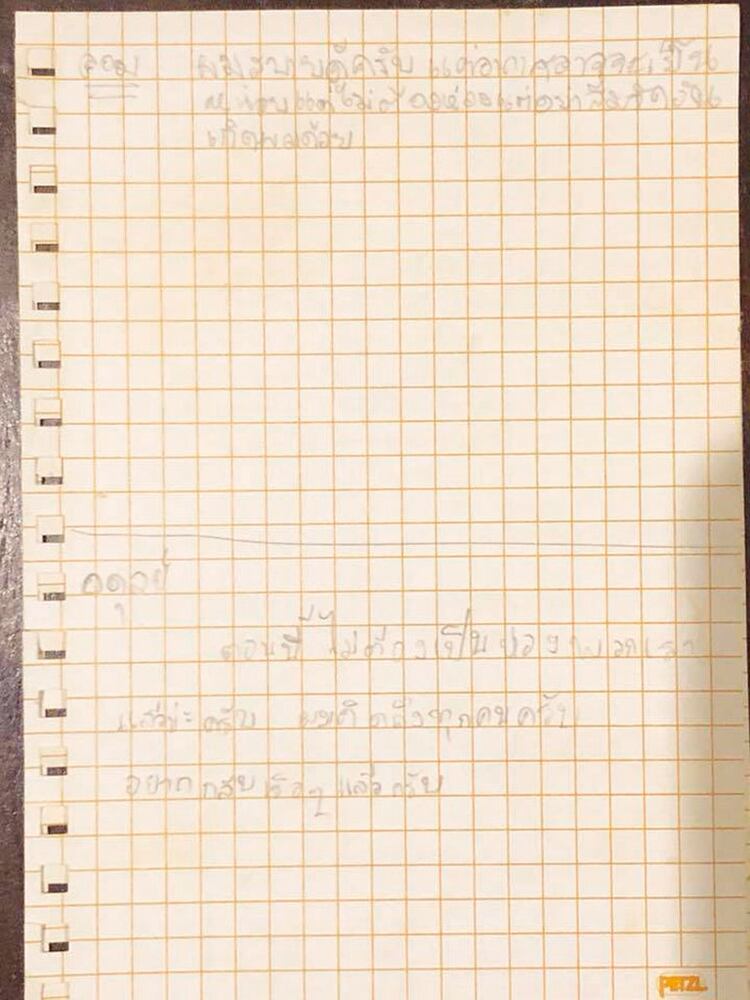 ดอม ผมสบายดีครับ แต่อากาศอาจจะเย็น
หน่อยแต่ไม่ต้องห่วงแต่อย่าลืมจัดวัน
เกิดผมด้วย
อดุลย์
ตอนนี้ไม่ต้องเป็นห่วงพวกเรา
แล้วนะครับ ผมคิดถึงทุกคนครับ
อยากกลับเร็วๆแล้วครับ
PETZL